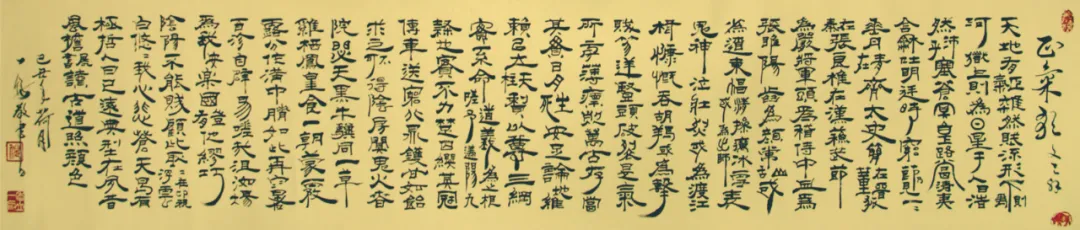 正气歌 文天祥
天地有正氣雜然賦流形下則
河嶽上則為日星于人曰浩
然沛乎塞蒼冥皇路當清夷
含龢吐明廷時窮節乃見一一
垂丹青在齊太史簡在晉董狐筆
在秦張良椎在漢蘇武節
為嚴將軍頭為嵇侍中血為
張睢陽齒為顏常山舌或
為遼東帽清操厲冰雪或為出師表
鬼神泣壯烈或為渡江
楫慷慨吞胡羯或為擊
賊笏逆豎頭破裂是氣
所旁薄凜烈萬古存當
其貫日月生死安足論地維
賴以立天柱賴以尊三綱
實系命道義為之根嗟予遘陽九
隸也實不力楚囚纓其冠
傳車送窮北鼎鑊甘如飴
求之不可得陰房闃鬼火春
院閟天黑牛驥同一皁
雞栖鳳皇食一朝蒙霧
露分作溝中瘠如此再寒暑
百沴自辟易嗟哉沮洳場
為我安樂國豈有他繆巧
陰陽不能賊顧此耿耿在仰視浮雲
白悠悠我心悲蒼天曷有
極哲人日已遠典刑在夙昔
風檐展書讀古道照顏色
己丑年荷月